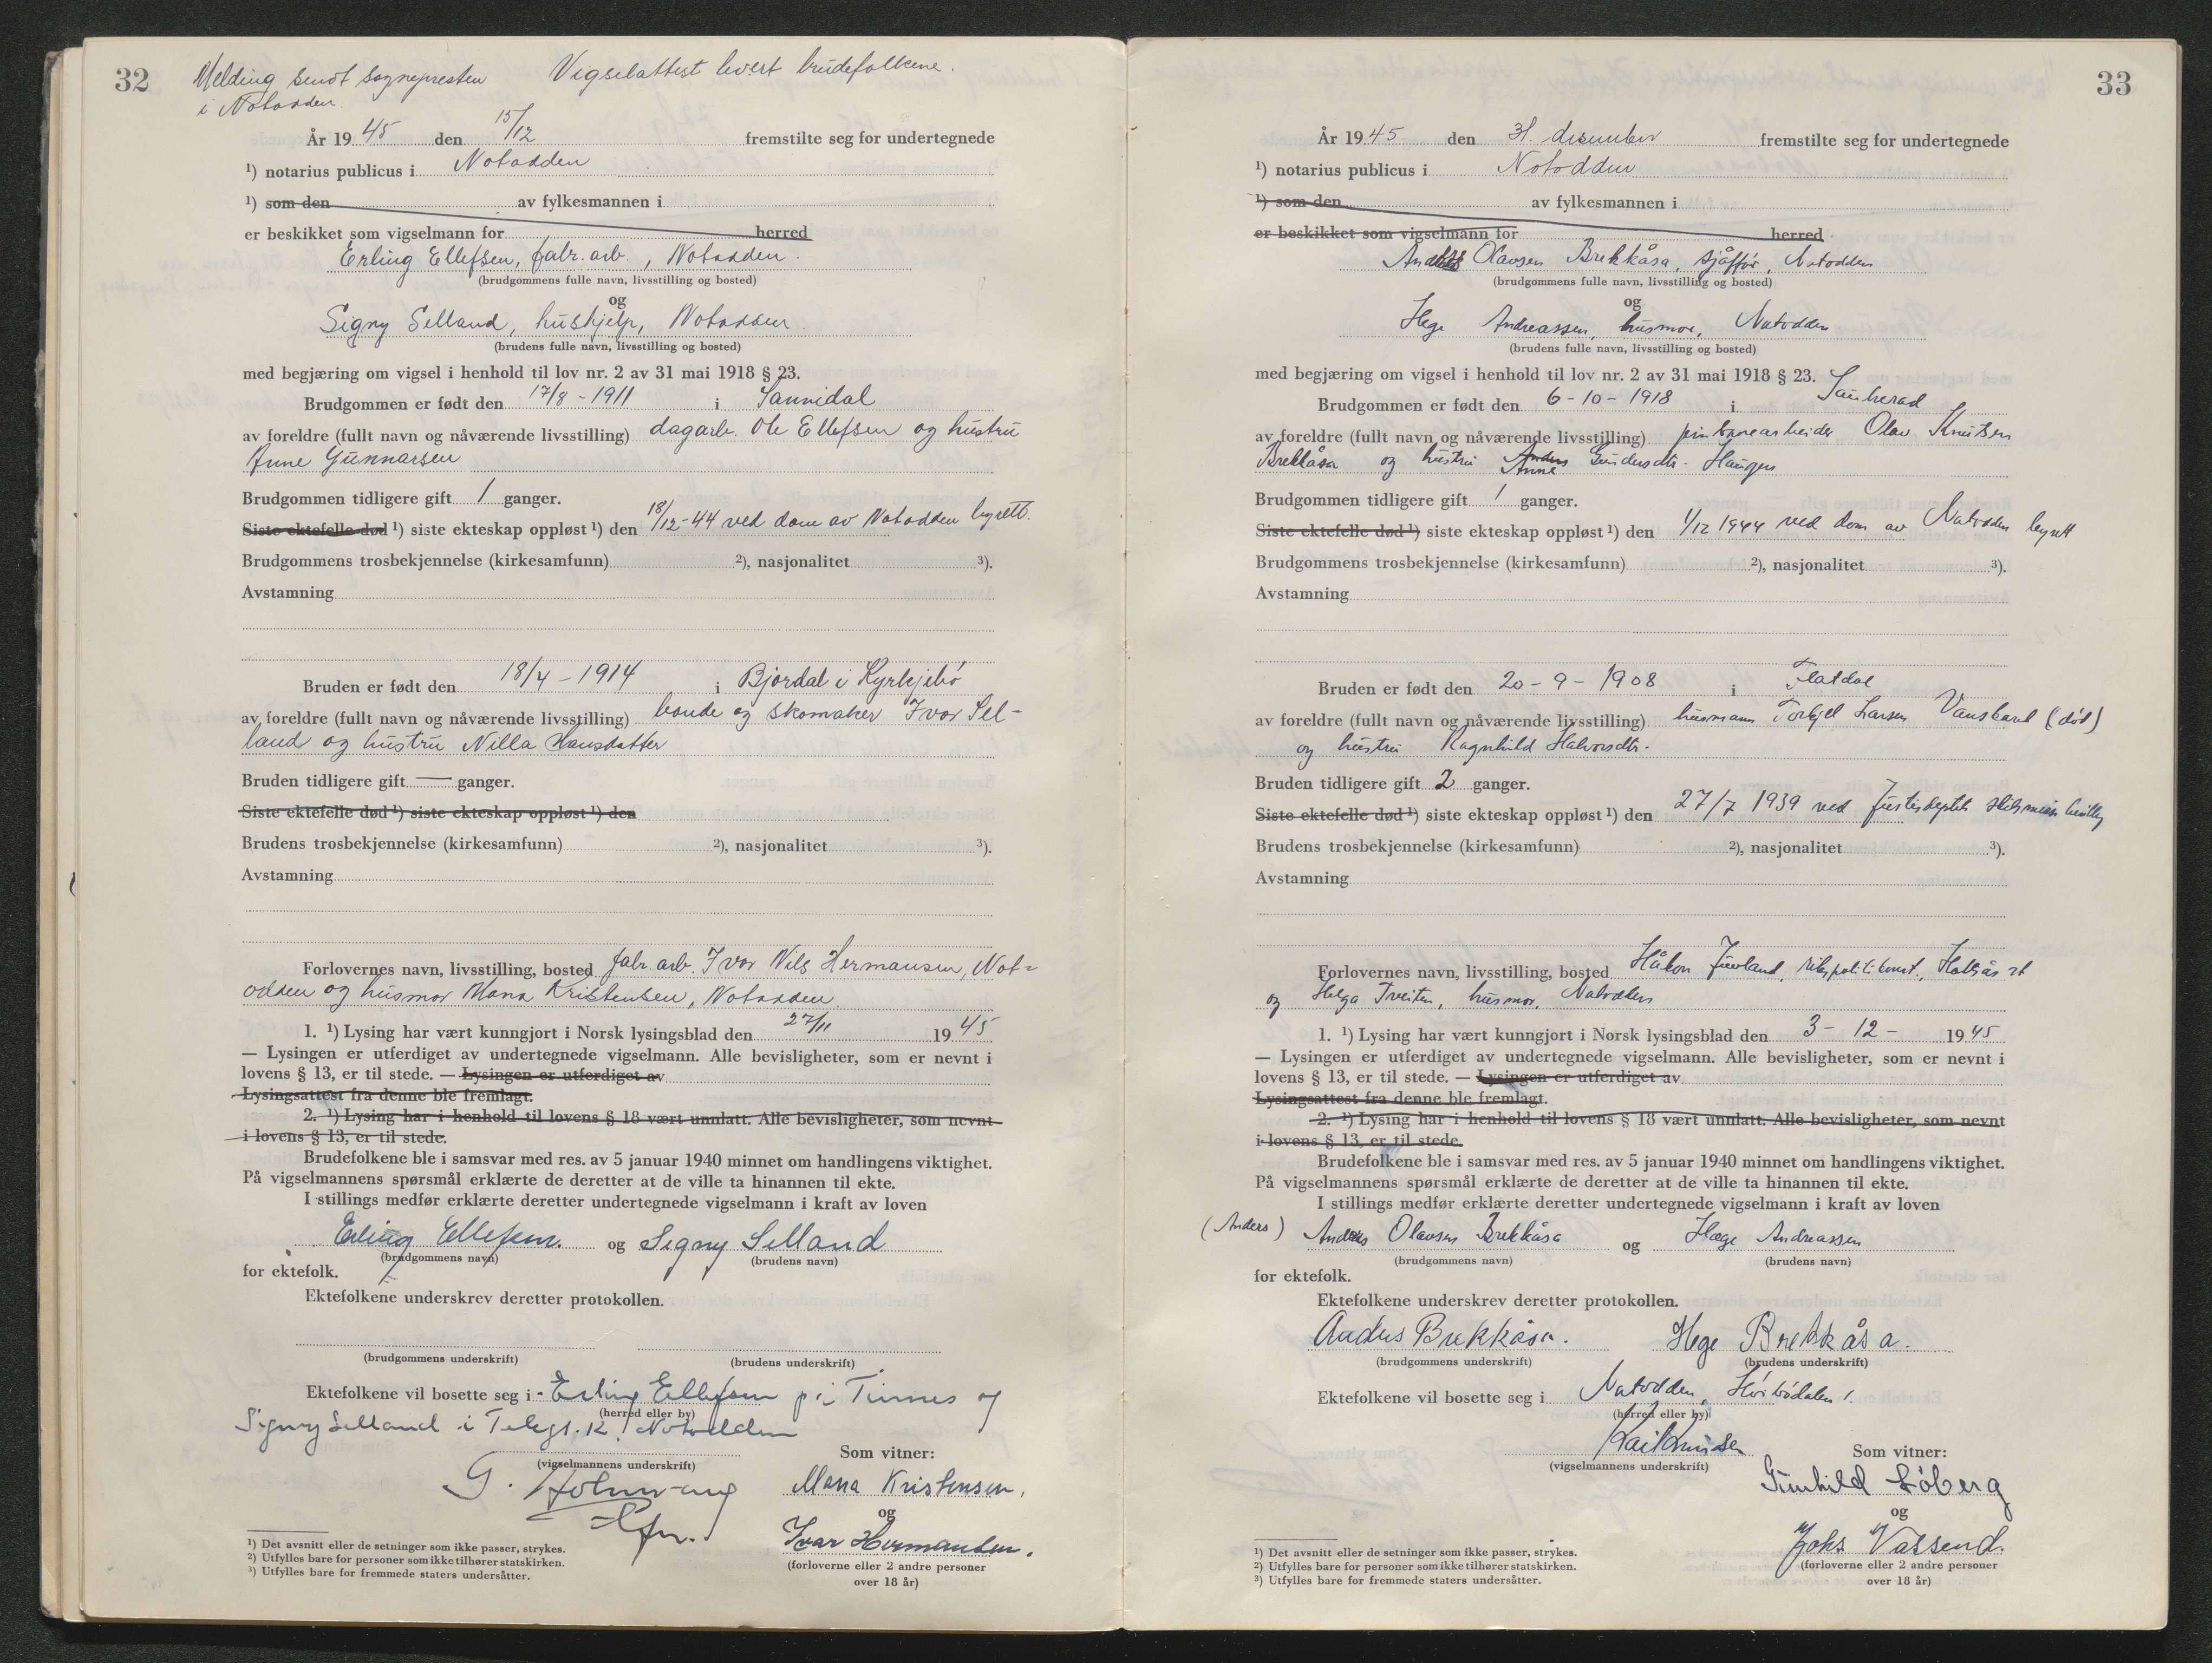 32
Melding sendt sognepresten Vigselattest levert brudefolkene.
i Notodden.
År 19 45 den 15/12 fremstilte seg for undertegnede
¹) notarius publicus i Notodden
¹) som den av fylkesmannen i
er beskikket som vigselmann for herred
Erling Ellefsen, fabr. arb., Notodden.
(brudgommens fulle navn, livsstilling og bosted)
og
Signy Selland, hushjelp, Notodden.
(brudens fulle navn, livsstilling og bosted)
med begjæring om vigsel i henhold til lov nr. 2 av 31 mai 1918 § 23.
Brudgommen er født den 17/8 - 1911 i Sannidal
av foreldre (fullt navn og nåværende livsstilling) dagarb. Ole Ellefsen og hustru
Anne Gunnarsen
Brudgommen tidligere gift 1 ganger.
Siste ektefelle død ¹) siste ekteskap oppløst ¹) den 18/12-44 ved dom av Notodden byrett.
Brudgommens trosbekjennelse (kirkesamfunn) ²), nasjonalitet ³).
Avstamning
Bruden er født den 18/4 - 1914 i Bjordal i Kyrkjebø
av foreldre (fullt navn og nåværende livsstilling) bonde og skomaker Ivar Sel-
land og hustru Nilla Hansdatter
Bruden tidligere gift — ganger.
Siste ektefelle død ¹) siste ekteskap oppløst ¹) den
Brudens trosbekjennelse (kirkesamfunn) ²), nasjonalitet ³).
Avstamning
Forlovernes navn, livsstilling, bosted fabr. arb. Ivar Nils Hermansen, Not-
odden og husmor Mana Kristensen, Notodden.
1. ¹) Lysing har vært kunngjort i Norsk lysingsblad den 27/11 19 45
— Lysingen er utferdiget av undertegnede vigselmann. Alle bevisligheter, som er nevnt i
lovens § 13, er til stede. — Lysingen er utferdiget av
Lysingsattest fra denne ble fremlagt.
2. ¹) Lysing har i henhold til lovens § 18 vært unnlatt. Alle bevisligheter, som nevnt
i lovens § 13, er til stede.
Brudefolkene ble i samsvar med res. av 5 januar 1940 minnet om handlingens viktighet.
På vigselmannens spørsmål erklærte de deretter at de ville ta hinannen til ekte.
I stillings medfør erklærte deretter undertegnede vigselmann i kraft av loven
Erling Ellefsen. og Signy Selland
(brudgommens navn) (brudens navn)
for ektefolk.
Ektefolkene underskrev deretter protokollen.
(brudgommens underskrift) (brudens underskrift)
Ektefolkene vil bosette seg i Erling Ellefsen på Tinnes og
(herred eller by)
Signy Selland i Telegt. K. Notodden
(vigselmannens underskrift) Som vitner:
G. Mana Kristensen,
og
Ivar Hermansen.
(forloverne eller 2 andre personer
over 18 år)
¹) Det avsnitt eller de setninger som ikke passer, strykes.
²) Utfylles bare for personer som ikke tilhører statskirken.
³) Utfylles bare for fremmede staters undersåtter.
33
År 19 45 den 31 desember fremstilte seg for undertegnede
¹) notarius publicus i Notodden
¹) som den av fylkesmannen i
er beskikket som vigselmann for herred
Anders Olavsen Brekkåsa, sjåffør, Notodden
(brudgommens fulle navn, livsstilling og bosted)
og
Hege Andreassen, husmor, Notodden
(brudens fulle navn, livsstilling og bosted)
med begjæring om vigsel i henhold til lov nr. 2 av 31 mai 1918 § 23.
Brudgommen er født den 6-10-1918 i Sauherad
av foreldre (fullt navn og nåværende livsstilling) jernbanearbeider Olav Knutsen
Brekkåsa og hustru Anders Anne Gundersdtr. Haugen
Brudgommen tidligere gift 1 ganger.
Siste ektefelle død ¹) siste ekteskap oppløst ¹) den 1/12 1944 ved dom av Notodden byrett
Brudgommens trosbekjennelse (kirkesamfunn) ²), nasjonalitet ³).
Avstamning
Bruden er født den 20-9-1908 i Flatdal
av foreldre (fullt navn og nåværende livsstilling) husmann Torkjel Larsen (død)
og hustru Ragnhild Halvorsdtr.
Bruden tidligere gift 2 ganger.
Siste ektefelle død ¹) siste ekteskap oppløst ¹) den 27/7 1939 ved Justisdeptets skilsmissebevilling
Brudens trosbekjennelse (kirkesamfunn) ²), nasjonalitet ³).
Avstamning
Forlovernes navn, livsstilling, bosted Håkon Juvland, rikspolitikonst.,
og Helga Tveiten, husmor, Notodden
1. ¹) Lysing har vært kunngjort i Norsk lysingsblad den 3-12- 19 45
— Lysingen er utferdiget av undertegnede vigselmann. Alle bevisligheter, som er nevnt i
lovens § 13, er til stede. — Lysingen er utferdiget av
Lysingsattest fra denne ble fremlagt.
2. ¹) Lysing har i henhold til lovens § 18 vært unnlatt. Alle bevisligheter, som nevnt
i lovens § 13, er til stede.
Brudefolkene ble i samsvar med res. av 5 januar 1940 minnet om handlingens viktighet.
På vigselmannens spørsmål erklærte de deretter at de ville ta hinannen til ekte.
I stillings medfør erklærte deretter undertegnede vigselmann i kraft av loven
(Anders) Anders Olavsen Brekkåsa og Hege Andreassen
(brudgommens navn) (brudens navn)
for ektefolk.
Ektefolkene underskrev deretter protokollen.
Anders Brekkåsa. Hege Brekkåsa.
(brudgommens underskrift) (brudens underskrift)
Ektefolkene vil bosette seg i Notodden,
(herred eller by)
Kai Knudsen
(vigselmannens underskrift) Som vitner:
Gunhild Løberg
og
Johs Vassend.
(forloverne eller 2 andre personer
over 18 år)
¹) Det avsnitt eller de setninger som ikke passer, strykes.
²) Utfylles bare for personer som ikke tilhører statskirken.
³) Utfylles bare for fremmede staters undersåtter.